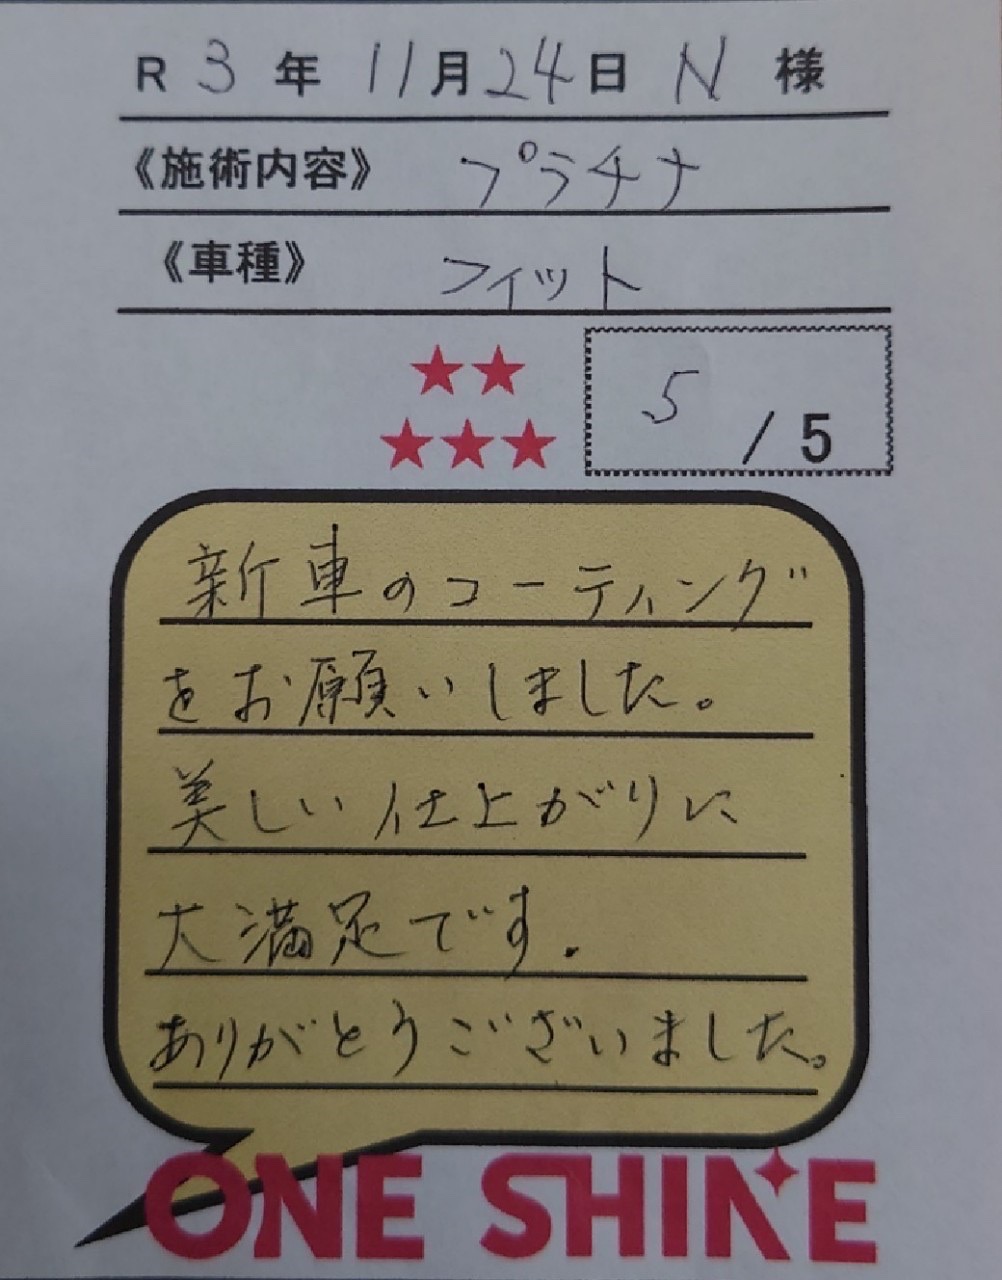 R 3 年 11 月 24 日 N 様
《施術内容》 プラチナ
《車種》 フィット
★★
★★★
5 / 5
新車のコーティング
をお願いしました。
美しい仕上がりに
大満足です.
ありがとうございました。
ONE SHINE